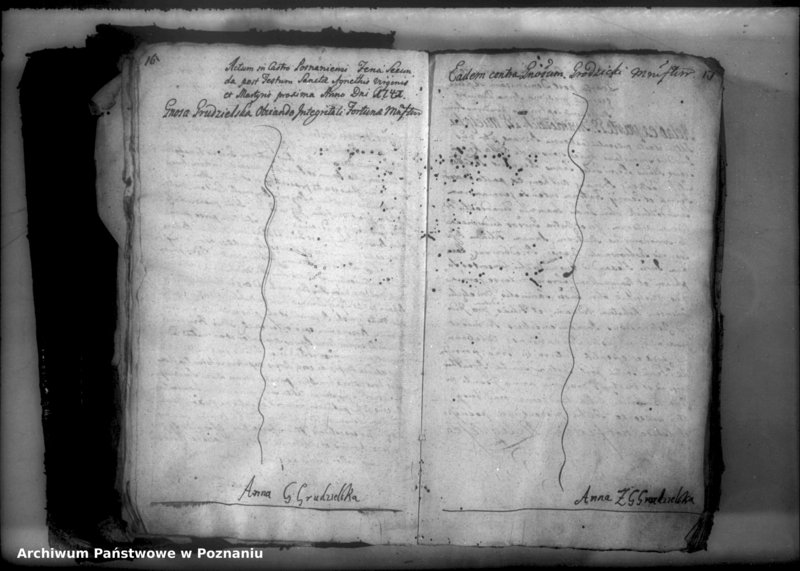 16
Actum in Castro Posnaniensi Feria Secun
da post Festum Sanctæ Agnethis Virginis
et Martyris proxima Anno Dni 1742
Gnosa Grudzielska Obviando Integritati Fortunæ Mãnftur
Anna G Grudzielska
Eadem contra Gnosum Grodzicki Mãnftur 17
Anna Z G Grudzielska
Archiwum Państwowe w Poznaniu